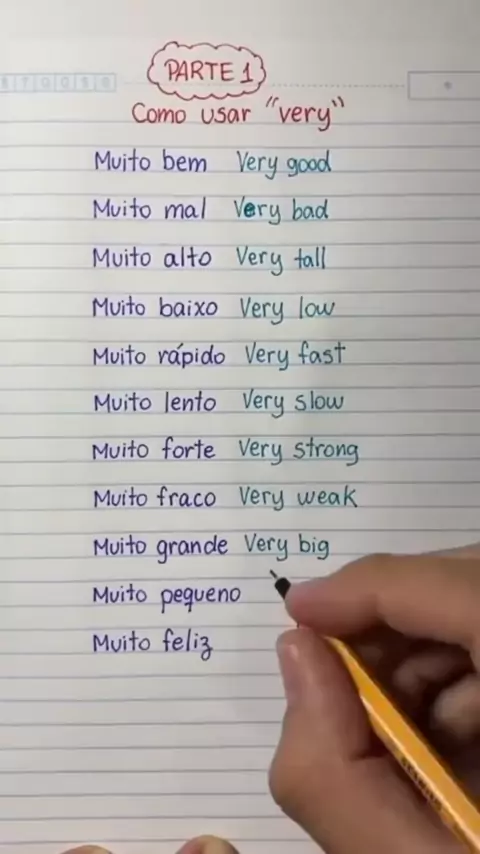 PARTE 1
Como usar "very"
Muito bem Very good
Muito mal Very bad
Muito alto Very tall
Muito baixo Very low
Muito rápido Very fast
Muito lento Very slow
Muito forte Very strong
Muito fraco Very weak
Muito grande Very big
Muito pequeno
Muito feliz